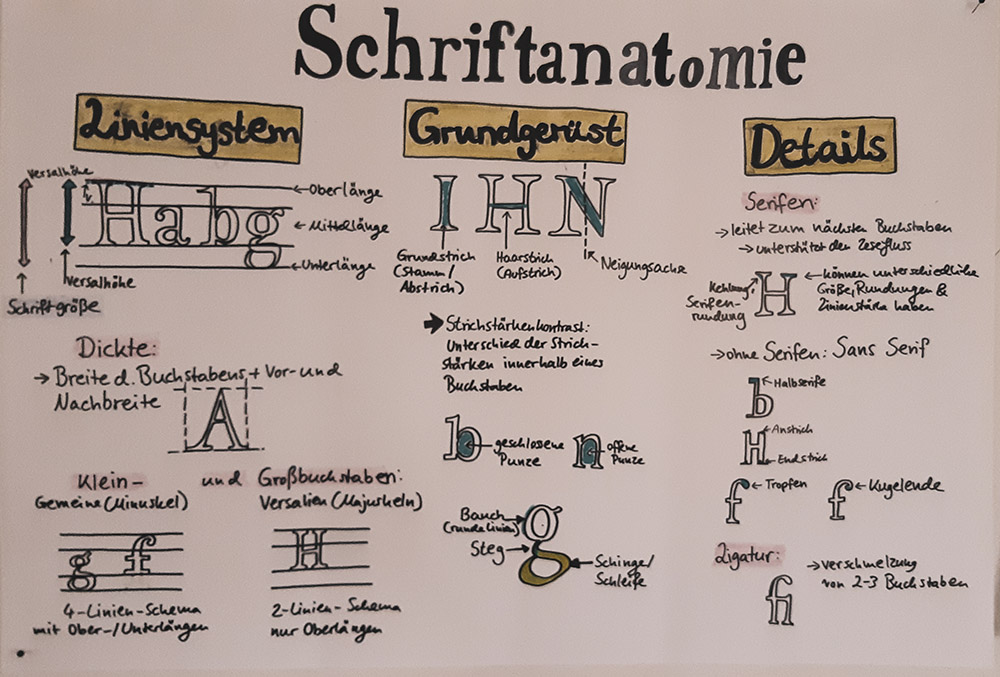 Schriftanatomie
Liniensystem
Versalhöhe
Habg
Oberlänge
Mittellänge
Unterlänge
Versalhöhe
Schriftgröße
Dickte:
→ Breite d. Buchstabens + Vor- und
Nachbreite
A
Klein- und Großbuchstaben:
Gemeine (Minuskel)
Versalien (Majuskeln)
g f
H
4-Linien-Schema
mit Ober-/Unterlängen
2-Linien-Schema
nur Oberlängen
Grundgerüst
I H N
Grundstrich
(Stamm/
Abstrich)
Haarstrich
(Aufstrich)
Neigungsachse
→ Strichstärkenkontrast:
Unterschied der Strich-
stärken innerhalb eines
Buchstaben
b
geschlossene
Punze
n
offene
Punze
Bauch
(runde Linien)
Steg
g
Schlinge/
Schleife
Details
Serifen:
→ leitet zum nächsten Buchstaben
→ unterstützt den Lesefluss
Kehlung,
Serifen-
rundung
H
← können unterschiedliche
Größe, Rundungen &
Linienstärke haben
→ ohne Serifen: Sans Serif
b
Halbserife
H
Anstrich
Endstrich
f
Tropfen
f
Kugelende
Ligatur:
→ Verschmelzung
von 2-3 Buchstaben
fi